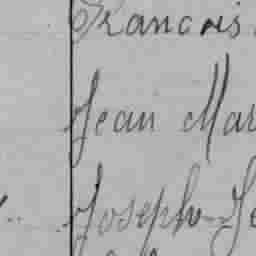 François
Jean Mar
Joseph Je